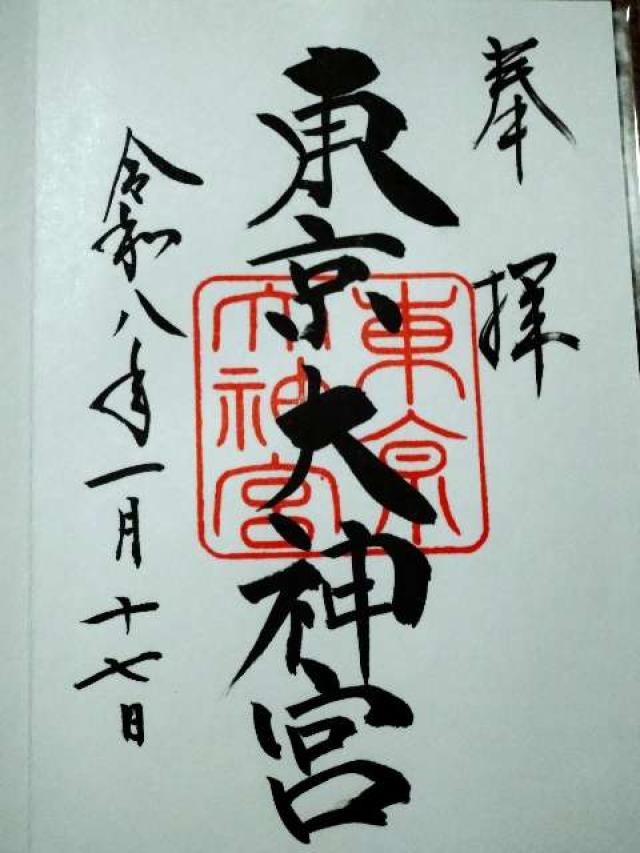 奉拝
東京大神宮
東京大神宮
令和八年一月十七日